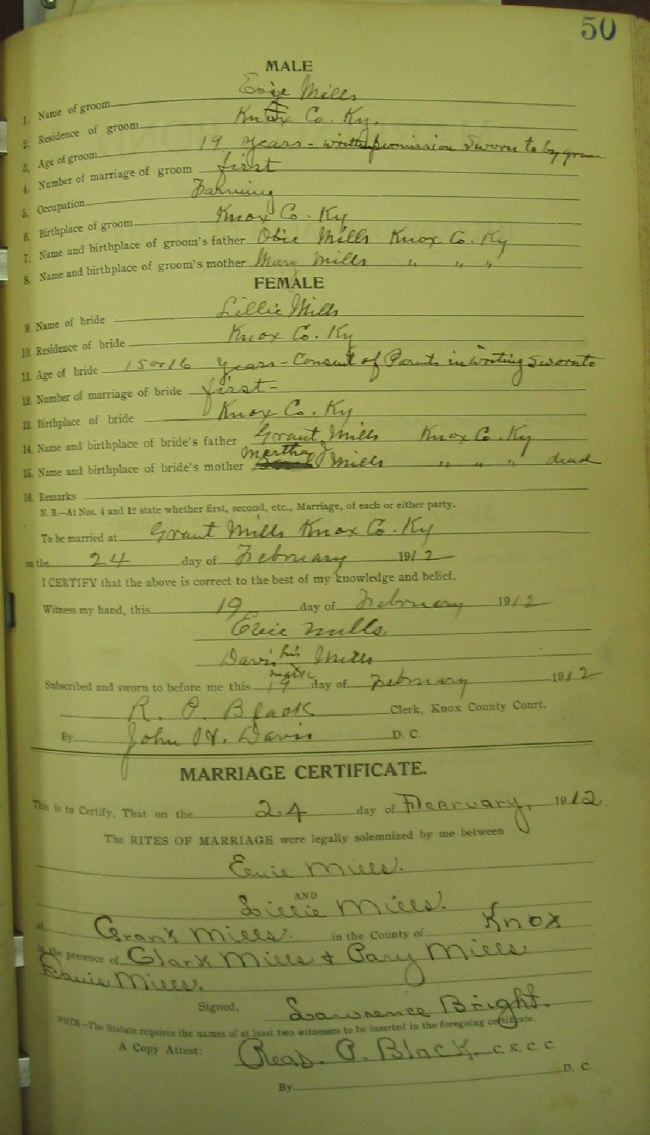 50
MALE
1. Name of groom Evie Mills
2. Residence of groom Knox Co. Ky.
3. Age of groom 19 years - written permission sworn to by groom
4. Number of marriage of groom first
5. Occupation Farming
6. Birthplace of groom Knox Co. Ky
7. Name and birthplace of groom's father Obie Mills Knox Co. Ky
8. Name and birthplace of groom's mother Mary Mills " " "
FEMALE
9. Name of bride Lillie Mills
10. Residence of bride Knox Co. Ky
11. Age of bride 15 or 16 years - Consent of Parents in writing sworn to
12. Number of marriage of bride first -
13. Birthplace of bride Knox Co. Ky
14. Name and birthplace of bride's father Grant Mills Knox Co. Ky
15. Name and birthplace of bride's mother Martha J Mills " " " dead
16. Remarks
N. B.—At Nos. 4 and 12 state whether first, second, etc., Marriage, of each or either party.
To be married at Grant Mills Knox Co. Ky
on the 24 day of February 1912
I CERTIFY that the above is correct to the best of my knowledge and belief.
Witness my hand, this 19 day of February 1912
Evie Mills
Davis his mark Mills
Subscribed and sworn to before me this 19 day of February 1912
R. P. Black Clerk, Knox County Court.
By John H. Davis D. C.
MARRIAGE CERTIFICATE.
This is to Certify, That on the 24 day of February, 1912.
The RITES OF MARRIAGE were legally solemnized by me between
Evie Mills.
AND
Lillie Mills.
at Grant Mills. in the County of Knox
in the presence of Clark Mills & Mills
Mills.
Signed, Lawrence Bright.
NOTE—The Statute requires the names of at least two witnesses to be inserted in the foregoing certificate.
A Copy Attest: Read. P. Black C. K. C. C.
By D. C.